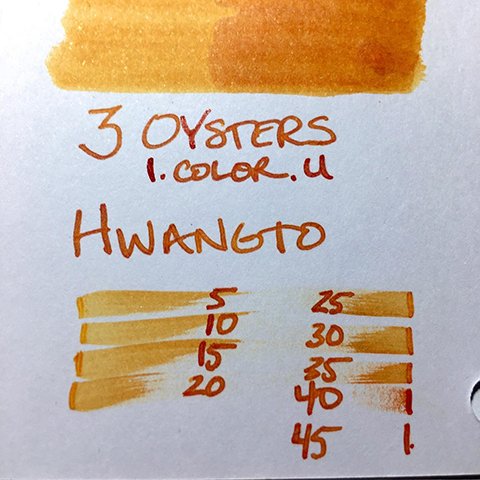 3 OYSTERS
I.COLOR.U
HWANGTO
5 25
10 30
15 35
20 40
45